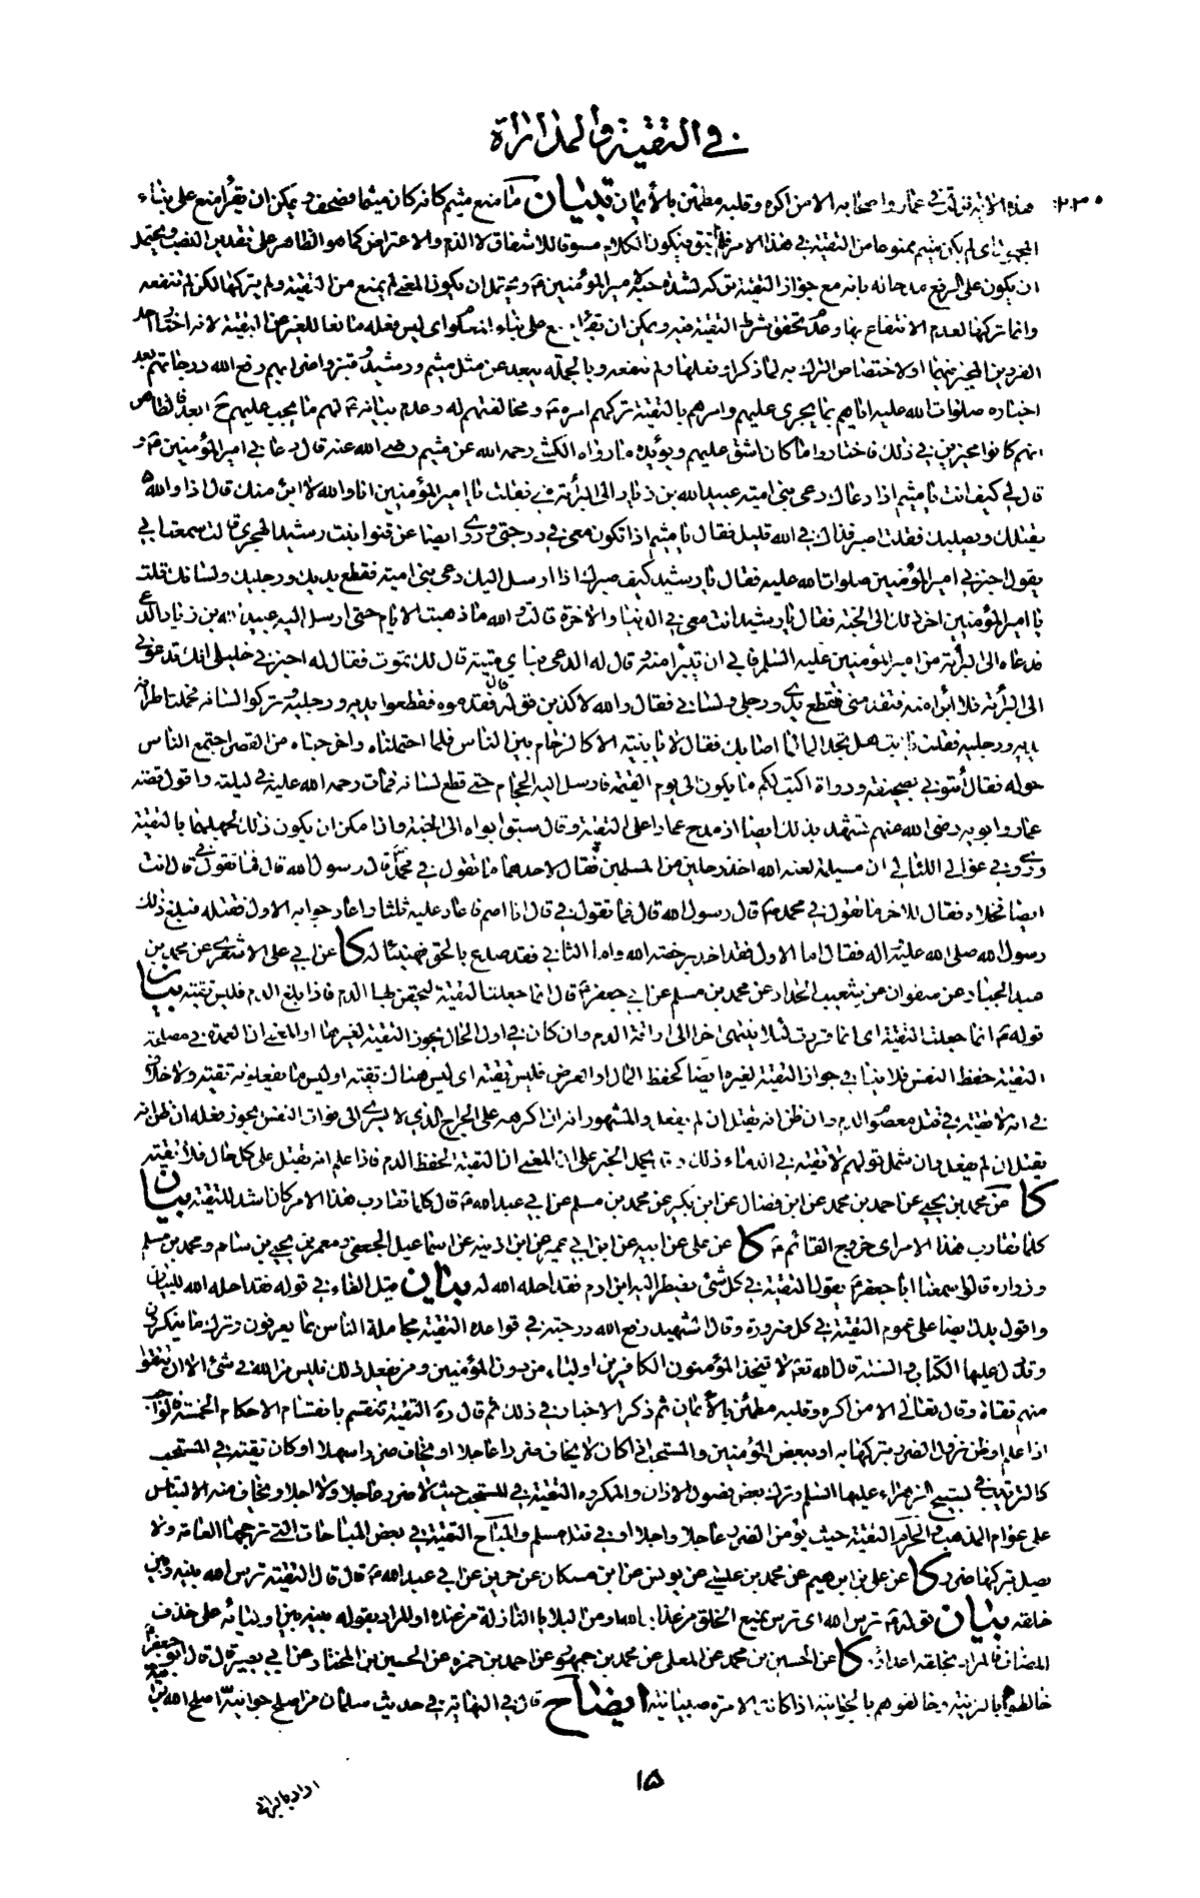 في التقية والمداراة
هذه الآية نزلت في عمار واصحابه الا من اكره وقلبه مطمئن بالأيمان تبيان ما منع ميثم كانه كان ميثما فصحف ويمكن ان يقرأ منع على بناء
المجهول اى لم يكن ميثم ممنوعا من التقية في هذا الامر فلم لم يتق فيكون الكلام مسوقا للاشفاق لا الذم والاعتراض كما هو الظاهر على تقدير النصب ويحتمل
ان يكون على الرفع مدحا له بانه مع جواز التقية تركه لشدة حبه لامير المؤمنين ع ويحتمل ان يكون المعنى لم يمنع من التقية ولم يتركها لكن لم تنفعه
وانما تركها لعدم الانتفاع بها وعدم تحقق شرط التقية فيه ويمكن ان يقرأ منع على بناء المعلوم اى ليس فعله مانعا للغير عن التقية لانه اختار احد
الفردين المخير فيهما او لاختصاص الترك به لما ذكر او فعلها ولم تنفعه وبالجملة يبعد عن مثل ميثم ورشيد وقنبر واضرابهم رفع الله درجاتهم بعد
اخباره صلوات الله عليه اياهم بما يجرى عليهم وامرهم بالتقية تركهم امره ع ومخالفتهم له وعدم بيانه ع لهم ما يجب عليهم ح ابعد فالظاهر
انهم كانوا مخيرين في ذلك فاختاروا ما كان اشق عليهم ويؤيده ما رواه الكشي رحمه الله عن ميثم رضى الله عنه قال دعاني امير المؤمنين ع و
قال لي كيف انت يا ميثم اذا دعاك دعى بني امية عبيد الله بن زياد الى البرائة مني فقلت يا امير المؤمنين انا والله لا ابرء منك قال اذا والله
يقتلك ويصلبك فقلت اصبر فذاك في الله قليل فقال يا ميثم اذا تكون معي في درجتي وروى ايضا عن قنوا بنت رشيد الهجري قالت سمعت ابي
يقول اخبرني امير المؤمنين صلوات الله عليه فقال يا رشيد كيف صبرك اذا ارسل اليك دعى بني امية فقطع يديك ورجليك ولسانك قلت
يا امير المؤمنين اخر ذلك الى الجنة فقال يا رشيد انت معي في الدنيا والآخرة قالت والله ما ذهبت الايام حتى ارسل اليه عبيد الله بن زياد الدعي
فدعاه الى البرائة من امير المؤمنين عليه السلم فابى ان يتبرا منه وقال له الدعى فباي ميتة قال لك تموت فقال له اخبرني خليلي انك تدعوني
الى البرائة فلا ابرأ منه فتقدمني فتقطع يدي ورجلي ولساني فقال والله لاكذبن قوله قال فقدموه فقطعوا يديه ورجليه وتركوا لسانه فحملت اطراف
يديه ورجليه فقلت يا ابت هل تجد الما لما اصابك فقال لا يا بنية الا كالزحام بين الناس فلما احتملناه واخرجناه من القصر اجتمع الناس
حوله فقال أتوني بصحيفة ودواة اكتب لكم ما يكون الى يوم القيمة فارسل اليه الحجام حتى قطع لسانه فمات رحمه الله عليه في ليلته واقول قصة
عمار وابويه رضى الله عنهم تشهد بذلك ايضا اذ مدح عمارا على التقية وقال سبق ابواه الى الجنة واذا مكن ان يكون ذلك لجهلهما بالتقية
وروى في عوالي اللئالي ان مسيلمة لعنه الله اخذ رجلين من المسلمين فقال لاحدهما ما تقول في محمد قال رسول الله قال فما تقول في قال انت
ايضا فخلاه فقال للاخر ما تقول في محمد ص قال رسول الله قال فما تقول في قال انا اصم فاعاد عليه ثلثا واعاد جوابه الاول فقتله فبلغ ذلك
رسول الله صلى الله عليه واله فقال اما الاول فقد اخذ برخصة الله واما الثاني فقد صدع بالحق فهنيئا له كا عن ابي علي الاشعري عن محمد بن
عبد الجبار عن صفوان عن شعيب الحداد عن محمد بن مسلم عن ابي جعفر ع قال انما جعلت التقية ليحقن بها الدم فاذا بلغ الدم فليس تقية بيان
قوله ع انما جعلت التقية اى انما قررت لئلا ينتهى اخرا الى اراقة الدم وان كان في اول الحال يجوز التقية لغيرها او المعنى ان العمدة في مصلحة
التقية حفظ النفس فلا ينافي جواز التقية لغيره ايضا كحفظ المال او العرض فليس تقية اى ليس هناك تقية او ليس ما يفعلونه تقية ولا خلاف
في انه لا تقية في قتل معصوم الدم وان ظن انه يقتل ان لم يفعل والمشهور انه ان اكرهه على الجراح الذي لا يسرى الى فوات النفس يجوز فعله ان ظن انه
يقتل ان لم يفعل وان شمل قولهم لا تقية في الدماء ذلك وقد يحمل الخبر على ان المعنى ان التقية لحفظ الدم فاذا علم انه يقتل على كل حال فلا تقية
كا عن محمد بن يحيى عن احمد بن محمد عن ابن فضال عن ابن بكير عن محمد بن مسلم عن ابي عبد الله ع قال كلما تقارب هذا الامر كان اشد للتقية بيان
كلما تقارب هذا الامر اى خروج القائم ع كا عن علي عن ابيه عن ابن ابي عمير عن ابن اذينة عن اسماعيل الجعفي ومعمر بن يحيى بن سام ومحمد بن مسلم
وزرارة قالوا سمعنا ابا جعفر ع يقول التقية في كل شئ يضطر اليه ابن ادم فقد احله الله له بيان قيل الفاء في قوله فقد احله الله للبيان
واقول يدل ايضا على عموم التقية في كل ضرورة وقال الشهيد رفع الله درجته في قواعده التقية مجاملة الناس بما يعرفون وترك ما ينكرون
وقد دل عليها الكتاب والسنة قال الله تع لا يتخذ المؤمنون الكافرين اولياء من دون المؤمنين ومن يفعل ذلك فليس من الله في شئ الا ان تتقوا
منهم تقاة وقال تعالى الا من اكره وقلبه مطمئن بالأيمان ثم ذكر الاخبار في ذلك ثم قال ره التقية تنقسم بانقسام الاحكام الخمسة فالواجب
اذا علم او ظن نزول الضرر بتركها به او ببعض المؤمنين والمستحب اذا كان لا يخاف ضررا عاجلا او يخاف ضررا سهلا او كان تقية في المستحب
كالترتيب في تسبيح الزهراء عليها السلم وترك بعض فصول الاذان والمكروه التقية في المستحب حيث لا ضرر عاجلا ولا اجلا ويخاف منه الالتباس
على عوام المذهب والحرام التقية حيث يؤمن الضرر عاجلا واجلا او في قتل مسلم والمباح التقية في بعض المباحات التي ترجحها العامة ولا
يصل بتركها ضرر كا عن علي بن ابرهيم عن محمد بن عيسى عن يونس عن ابن مسكان عن حريز عن ابي عبد الله ع قال قال التقية ترس الله بينه وبين
خلقه بيان قوله ع ترس الله اى ترس يمنع الخلق من عذاب الله او من البلايا النازلة من عنده او المراد بقوله بينه بين اوليائه على حذف
المضاف فالمراد بخلقه اعداؤه كا عن الحسين بن محمد عن المعلى عن محمد بن جمهور عن احمد بن حمزة عن الحسين بن المختار عن ابي بصير قال قال ابو جعفر ع
خالطوهم بالبرانية وخالفوهم بالجوانية اذا كانت الامرة صبيانية ايضاح قال في النهاية في حديث سلمان من اصلح جوانيه اصلح الله برانيه
١٥